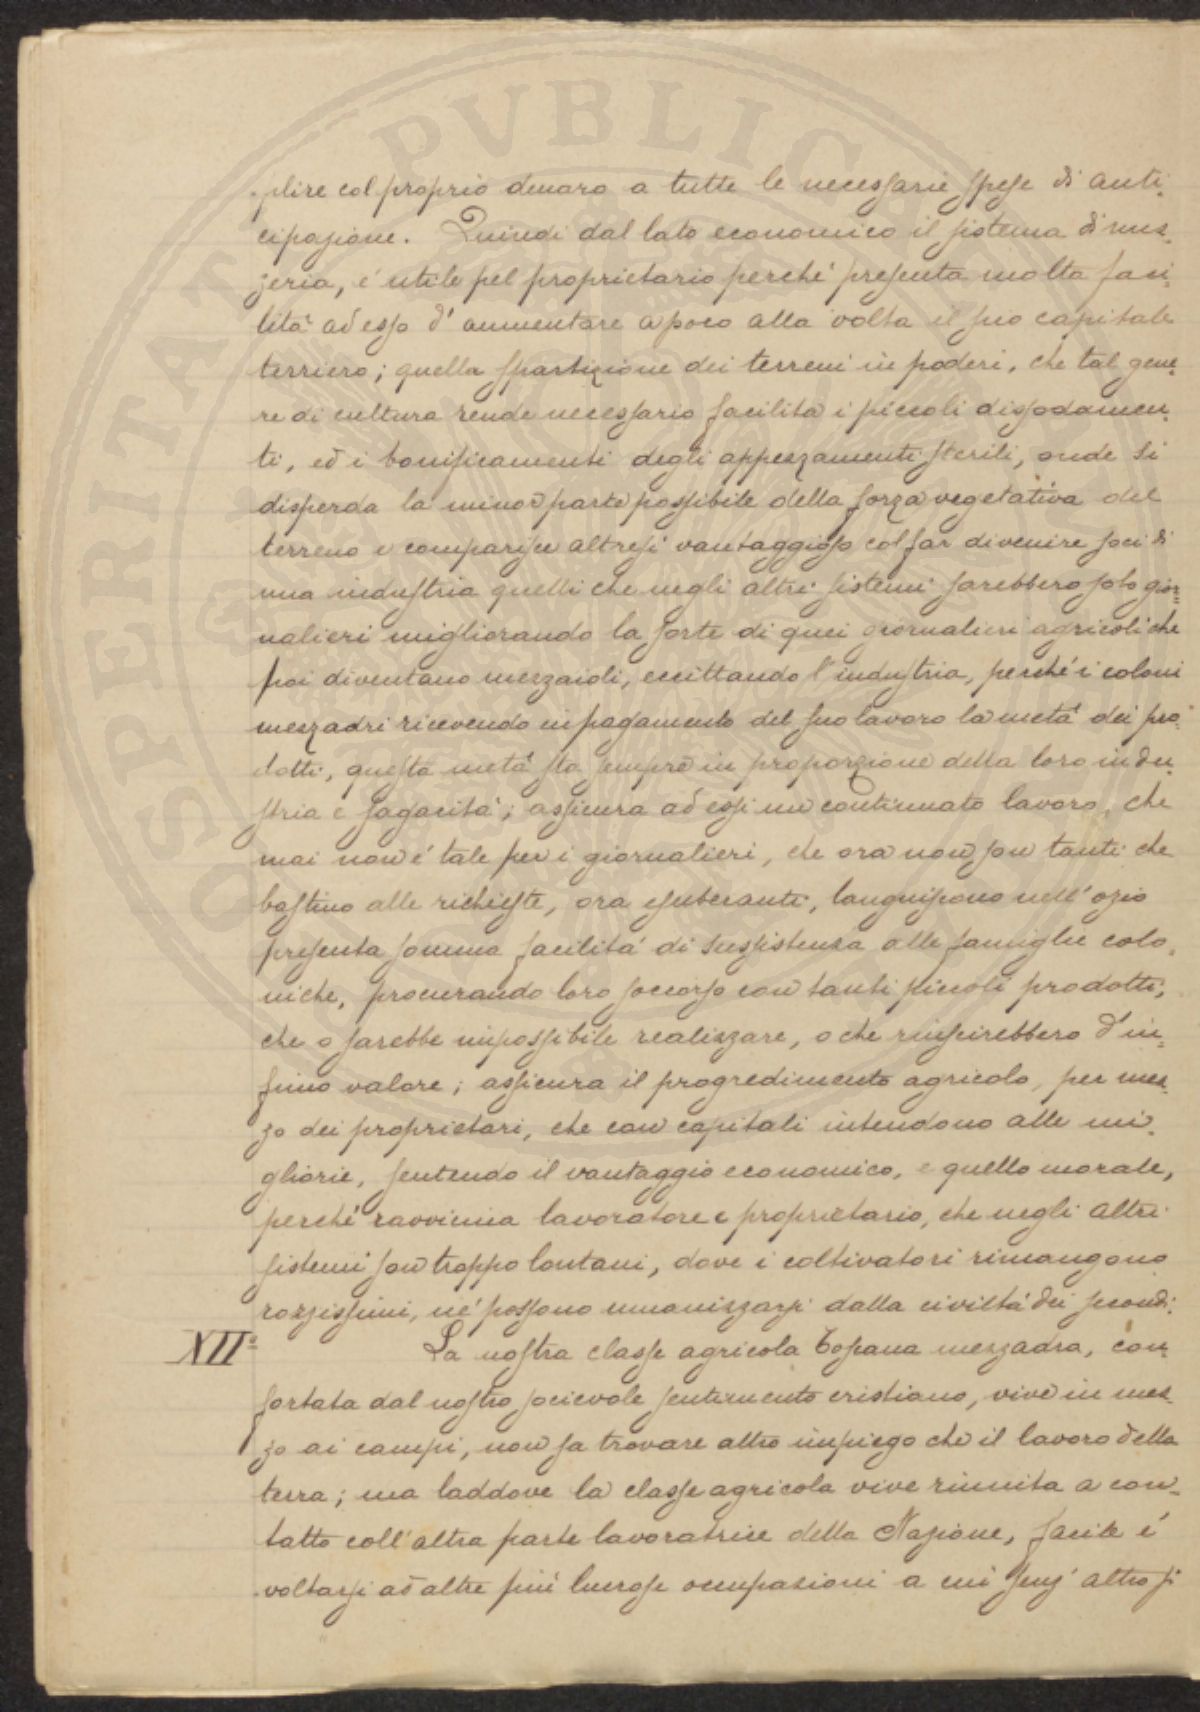 plire col proprio denaro a tutte le necessarie spese di anti-
cipazione. Quindi dal lato economico il sistema di mez-
zeria, é utile pel proprietario perché presenta molta faci-
litá ad esso d'aumentare a poco alla volta il suo capitale
terriero; quella spartizione dei terreni in poderi, che tal gene-
re di cultura rende necessario facilita i piccoli dissodamen-
ti, ed i bonificamenti degli appezzamenti sterili, onde si
disperda la minor parte possibile della forza vegetativa del
terreno e comparisce altresí vantaggioso col far divenire soci di
una industria quelli che negli altri sistemi sarebbero solo gior=
nalieri migliorando la sorte di quei giornalieri agricoli che
poi diventano mezzaioli, eccittando l'industria, perché i coloni
mezzadri ricevendo in pagamento del suo lavoro la metá dei pro-
dotti, questa metá sta sempre in proporzione della loro indu-
stria e sagacitá; assicura ad essi un continuato lavoro, che
mai non é tale per i giornalieri, che ora non son tanti che
bastino alle richieste, ora esuberanti, languiscono nell'ozio
presenta somma facilitá di sussistenza alle famiglie colo-
niche, procurando loro soccorso con tanti piccoli prodotti,
che o sarebbe impossibile realizzare, o che riuscirebbero d'in=
fimo valore; assicura il progredimento agricolo, per mez-
zo dei proprietari, che con capitali intendono alle mi-
gliorie, sentendo il vantaggio economico, e quello morale,
perché ravvicina lavoratore e proprietario, che negli altri
sistemi son troppo lontani, dove i coltivatori rimangono
rozzissimi, né possono umanizzarsi dalla civiltá dei secondi.
XII° La nostra classe agricola Toscana mezzadra, con-
fortata dal nostro socievole sentimento cristiano, vive in mez-
zo ai campi, non sa trovare altro impiego che il lavoro della
terra; ma laddove la classe agricola vive riunita a con-
tatto coll'altra parte lavoratrice della Nazione, facile é
voltarsi ad altre piú lucrose occupazioni a cui senz'altro si
SPERITAT PVBLICA